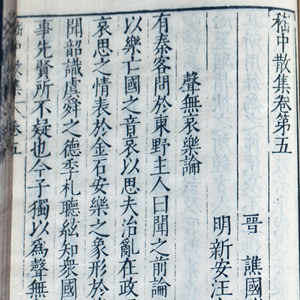 嵇中散集卷第五
晉 譙國
明 新安汪
聲無哀樂論
有秦客問於東野主人曰聞之前論
以樂亡國之音哀以思夫治亂在政
哀思之情表於金石安樂之象形於
聞韶識虞舜之德季札聽絃知衆國
事先賢所不疑也今子獨以爲聲無
嵇中散集 卷五